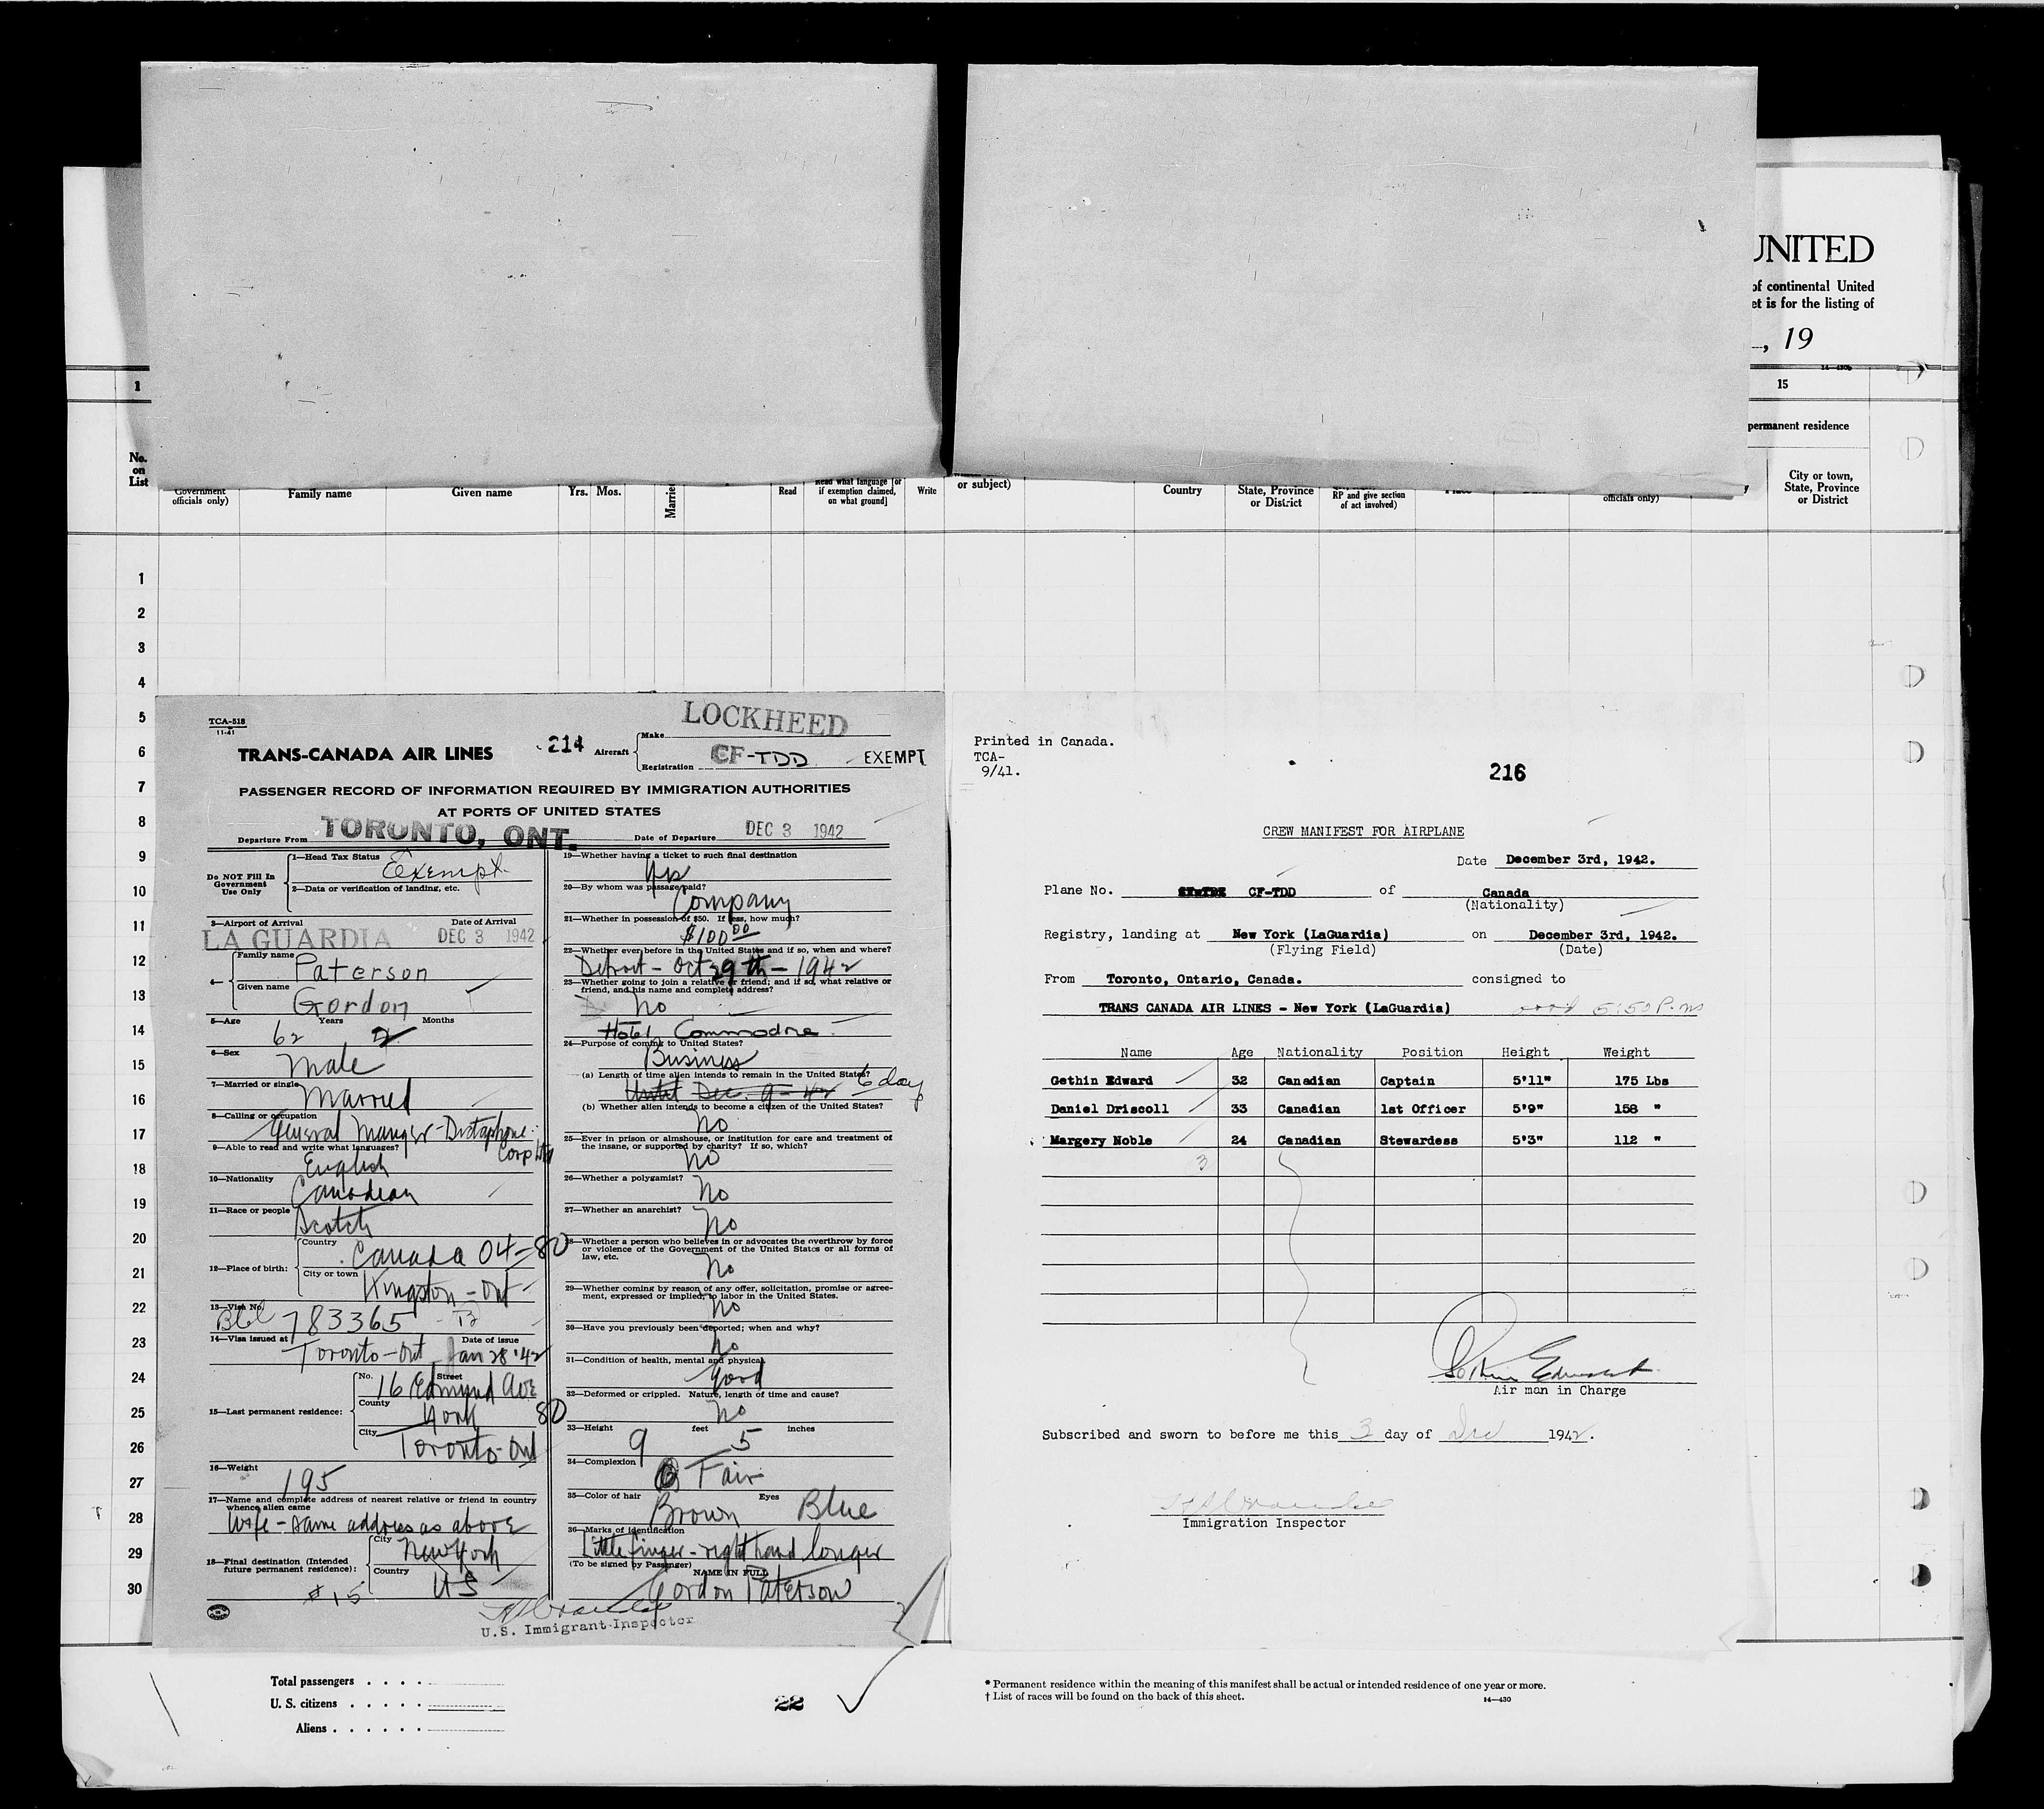 UNITED
of continental United
et is for the listing of
, 19
14—430b
1
15
permanent residence
No.
on
List
Government
officials only)
Family name
Given name
Yrs. Mos.
Married
Read
Read what language [or
if exemption claimed,
on what ground]
Write
or subject)
Country
State, Province
or District
RP and give section
of act involved)
officials only)
City or town,
State, Province
or District
1
2
3
4
5
6
7
8
9
10
11
12
13
14
15
16
17
18
19
20
21
22
23
24
25
26
27
28
29
30
TCA-518
11-41
LOCKHEED
TRANS-CANADA AIR LINES
214
Aircraft
Make
Registration CF-TDD
EXEMPT
PASSENGER RECORD OF INFORMATION REQUIRED BY IMMIGRATION AUTHORITIES
AT PORTS OF UNITED STATES
Departure From TORONTO, ONT.
Date of Departure DEC 3 1942
Do NOT Fill In
Government
Use Only
1—Head Tax Status Exempt.
2—Data or verification of landing, etc.
3—Airport of Arrival
Date of Arrival
LA GUARDIA DEC 3 1942
4—
Family name Paterson
Given name Gordon
5—Age 62 Years 2 Months
6—Sex Male
7—Married or single Married
8—Calling or occupation
General Manger - Dictaphone
Corp Ltd
9—Able to read and write what languages?
English
10—Nationality Canadian
11—Race or people Scotch
12—Place of birth:
Country Canada 04-80
City or town Kingston - Ont
13—Visa No. 783365
14—Visa issued at
Date of issue
Toronto - Ont Jan 28 '42
15—Last permanent residence:
No. Street
16 Edmund Ave
County York 80
City Toronto - Ont
16—Weight 195
17—Name and complete address of nearest relative or friend in country
whence alien came
Wife - same address as above
18—Final destination (Intended
future permanent residence):
City New York
Country US
$15
19—Whether having a ticket to such final destination
Yes
20—By whom was passage paid?
Company
21—Whether in possession of $50. If less, how much?
$100 00
22—Whether ever before in the United States and if so, when and where?
Detroit - Oct 29th - 1942
23—Whether going to join a relative or friend; and if so, what relative or
friend, and his name and complete address?
No
Hotel Commodore
24—Purpose of coming to United States?
Business
(a) Length of time alien intends to remain in the United States?
Until Dec. 9 - 42 6 day
(b) Whether alien intends to become a citizen of the United States?
No
25—Ever in prison or almshouse, or institution for care and treatment of
the insane, or supported by charity? If so, which?
No
26—Whether a polygamist?
No
27—Whether an anarchist?
No
28—Whether a person who believes in or advocates the overthrow by force
or violence of the Government of the United States or all forms of
law, etc.
No
29—Whether coming by reason of any offer, solicitation, promise or agree-
ment, expressed or implied, to labor in the United States.
No
30—Have you previously been deported; when and why?
No
31—Condition of health, mental and physical.
Good
32—Deformed or crippled. Nature, length of time and cause?
No
33—Height feet inches
9 5
34—Complexion Fair
35—Color of hair Eyes
Brown Blue
36—Marks of identification
Little finger - right hand longer
(To be signed by Passenger)
NAME IN FULL
Gordon Paterson
U.S. Immigrant Inspector
Printed in Canada.
TCA-
9/41.
216
CREW MANIFEST FOR AIRPLANE
Date December 3rd, 1942.
Plane No. CF-TDD of Canada
(Nationality)
Registry, landing at New York (LaGuardia) on December 3rd, 1942.
(Flying Field) (Date)
From Toronto, Ontario, Canada. consigned to
TRANS CANADA AIR LINES - New York (LaGuardia) 5:50 P.m
Name Age Nationality Position Height Weight
Gethin Edward 32 Canadian Captain 5'11" 175 Lbs
Daniel Driscoll 33 Canadian 1st Officer 5'9" 158 "
Margery Noble 24 Canadian Stewardess 5'3" 112 "
3
Air man in Charge
Subscribed and sworn to before me this 3 day of Dec 1942.
Immigration Inspector
Total passengers
U. S. citizens
Aliens
22
* Permanent residence within the meaning of this manifest shall be actual or intended residence of one year or more.
† List of races will be found on the back of this sheet.
14—430